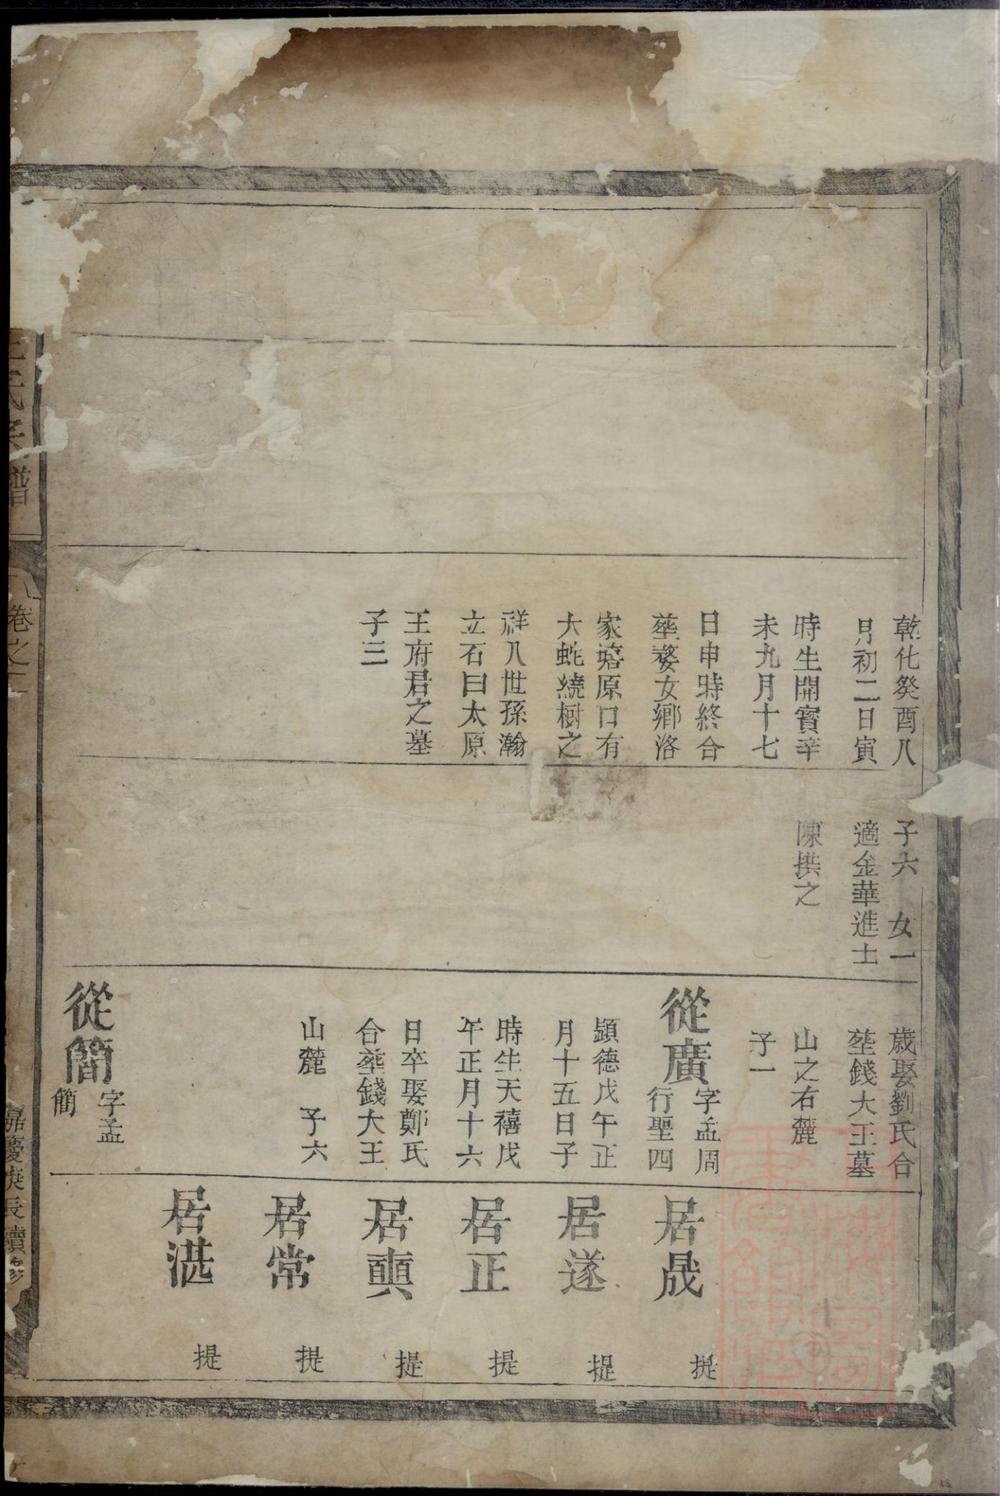 乾化癸酉八
月初二日寅
時生開寶辛
未九月十七
日申時終合
塟婺女鄉洛
家塘原口有
大蛇繞樹之
祥八世孫瀚
立石曰太原
王府君之墓
子三
子六 女一
適金華進士
陳拱之
歲娶劉氏合
塟錢大王墓
山之右麓
子一
從廣 字孟周
行聖四
顕德戊午正
月十五日子
時生天禧戊
午正月十六
日卒娶鄭氏
合塟錢大王
山麓 子六
從簡 字孟
簡
居晟 提
居遂 提
居正 提
居 提
居常 提
居湛 提
王氏宗譜
卷之二
嘉慶庚辰續修